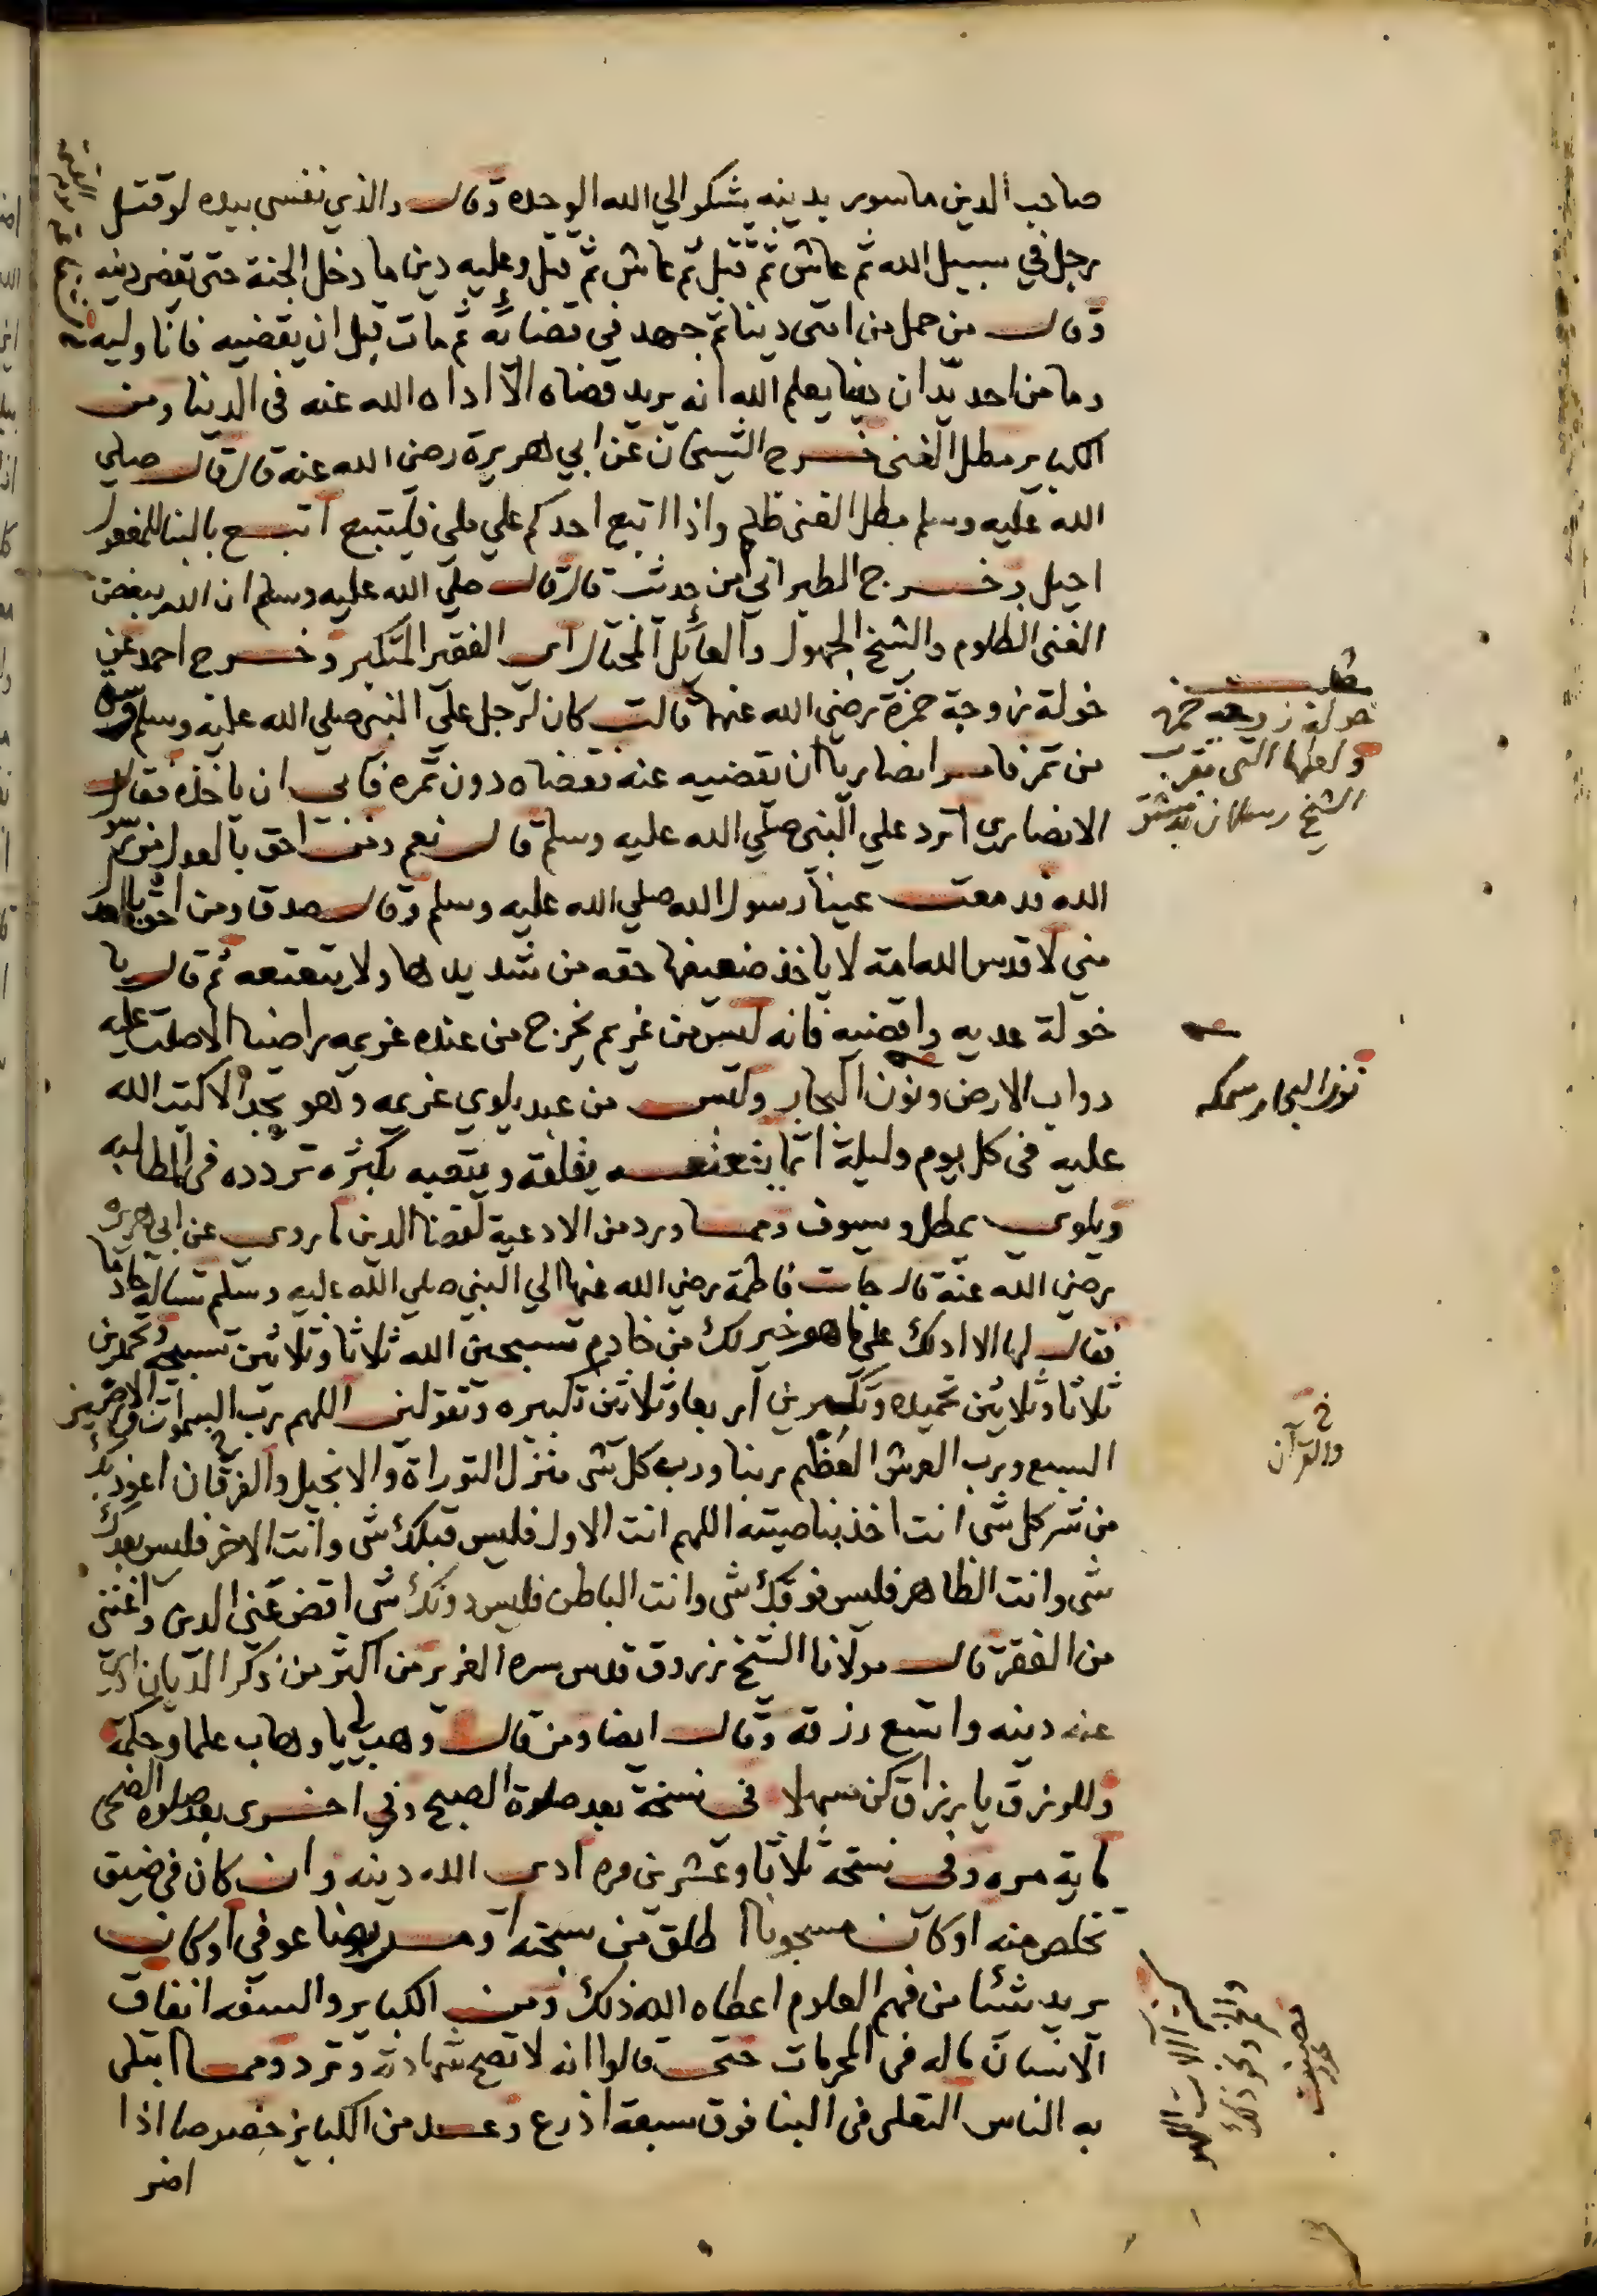 صاحب الدين ماسور بدينه يشكو الي الله الوحده وقال والذي نفسي بيده لو قتل
رجل في سبيل الله ثم عاش ثم قتل ثم عاش ثم قتل وعليه دين ما دخل الجنة حتى يقضى دينه
وقال من حمل من امتى دينا ثم جهد في قضائه ثم مات قبل ان يقضيه فانا وليه
وما من احد يدان دينا يعلم الله انه يريد قضاه الا اداه الله عنه فى الدنيا ومن
الكباير مطل الغنى خرج الشيخان عن ابي هريرة رضي الله عنه قال قال صلي
الله عليه وسلم مطل الغنى ظلم واذا اتبع احدكم علي ملى فليتبع اتبع بالبنا للمفعول
احيل وخرج الطبراني من حديث قال قال صلي الله عليه وسلم ان الله يبغض
الغنى الظلوم والشيخ الجهول والعائل المختال اى الفقير المتكبر وخرج احمد عن
خولة زوجة حمزة رضي الله عنهما قالت كان لرجل علي النبى صلي الله عليه وسلم وسق
من تمر فامر انصاريا ان يقضيه عنه فقضاه دون تمره فابى ان ياخذه فقال
الانصارى اترد علي النبى صلي الله عليه وسلم قال نعم ومن احق بالعدل من رسول
الله فدمعت عينا رسول الله صلي الله عليه وسلم وقال صدق ومن احق بالعدل
مني لا قدس الله امة لا ياخذ ضعيفها حقه من شديدها ولا يتعتعه ثم قال يا
خولة عديه واقضيه فانه ليس من غريم يخرج من عنده غريمه راضيا الا صلت عليه
دواب الارض ونون البحار وليس من عبد يلوي غريمه وهو يجد الا كتب الله
عليه فى كل يوم وليلة اثما يتعتعه يقلقه ويتعبه بكثرة تردده في المطالبه
ويلوى يمطل ويسوف ومما ورد من الادعية لقضا الدين ما روى عن ابي هريره
رضي الله عنه قال جات فاطمة رضي الله عنها الي النبى صلي الله عليه وسلم تساله خادما
فقال لها الا ادلك على ما هو خير لك من خادم تسبحين الله ثلاثا وثلاثين تسبيحه وتحمدين
ثلاثا وثلاثين تحميده وتكبرين اربعا وثلاثين تكبيره وتقولين اللهم رب السموات والارضين
السبع ورب العرش العظيم ربنا ورب كل شى منزل التوراة والانجيل والفرقان اعوذ بك
من شر كل شى انت اخذ بناصيته اللهم انت الاول فليس قبلك شى وانت الاخر فليس بعدك
شى وانت الظاهر فليس فوقك شى وانت الباطن فليس دونك شى اقض عنى الدين واغننى
من الفقر قال مولانا الشيخ زروق قدس سره العزيز من اكثر من ذكر الديان ادى
عنه دينه واتسع رزقه وقال ايضا ومن قال وهب لي يا وهاب علما وحكمة
وللرزق يا رزاق كن مسهلا فى نسخة بعد صلوة الصبح وفي اخرى بعد صلوة الضحى
ماية مره وفى نسخه ثلاثا وعشرين مره ادى الله دينه وان كان في ضيق
تخلص منه او كان مسجونا اطلق من سجنه او مريضا عوفى او كان
يريد شئا من فهم العلوم اعطاه الله ذلك ومن الكباير والسفه انفاق
الانسان ماله فى المحرمات حتى قالوا انه لا تصح شهادته وترد ومما ابتلى
به الناس التعلى فى البنا فوق سبعة اذرع وعد من الكباير خصوصا اذا
اضر
مطلب
خولة زوجه حمزه
ولعلها التى بقرب
الشيخ رسلان بدمشق
نون البحار سمكه
خ
والقرآن